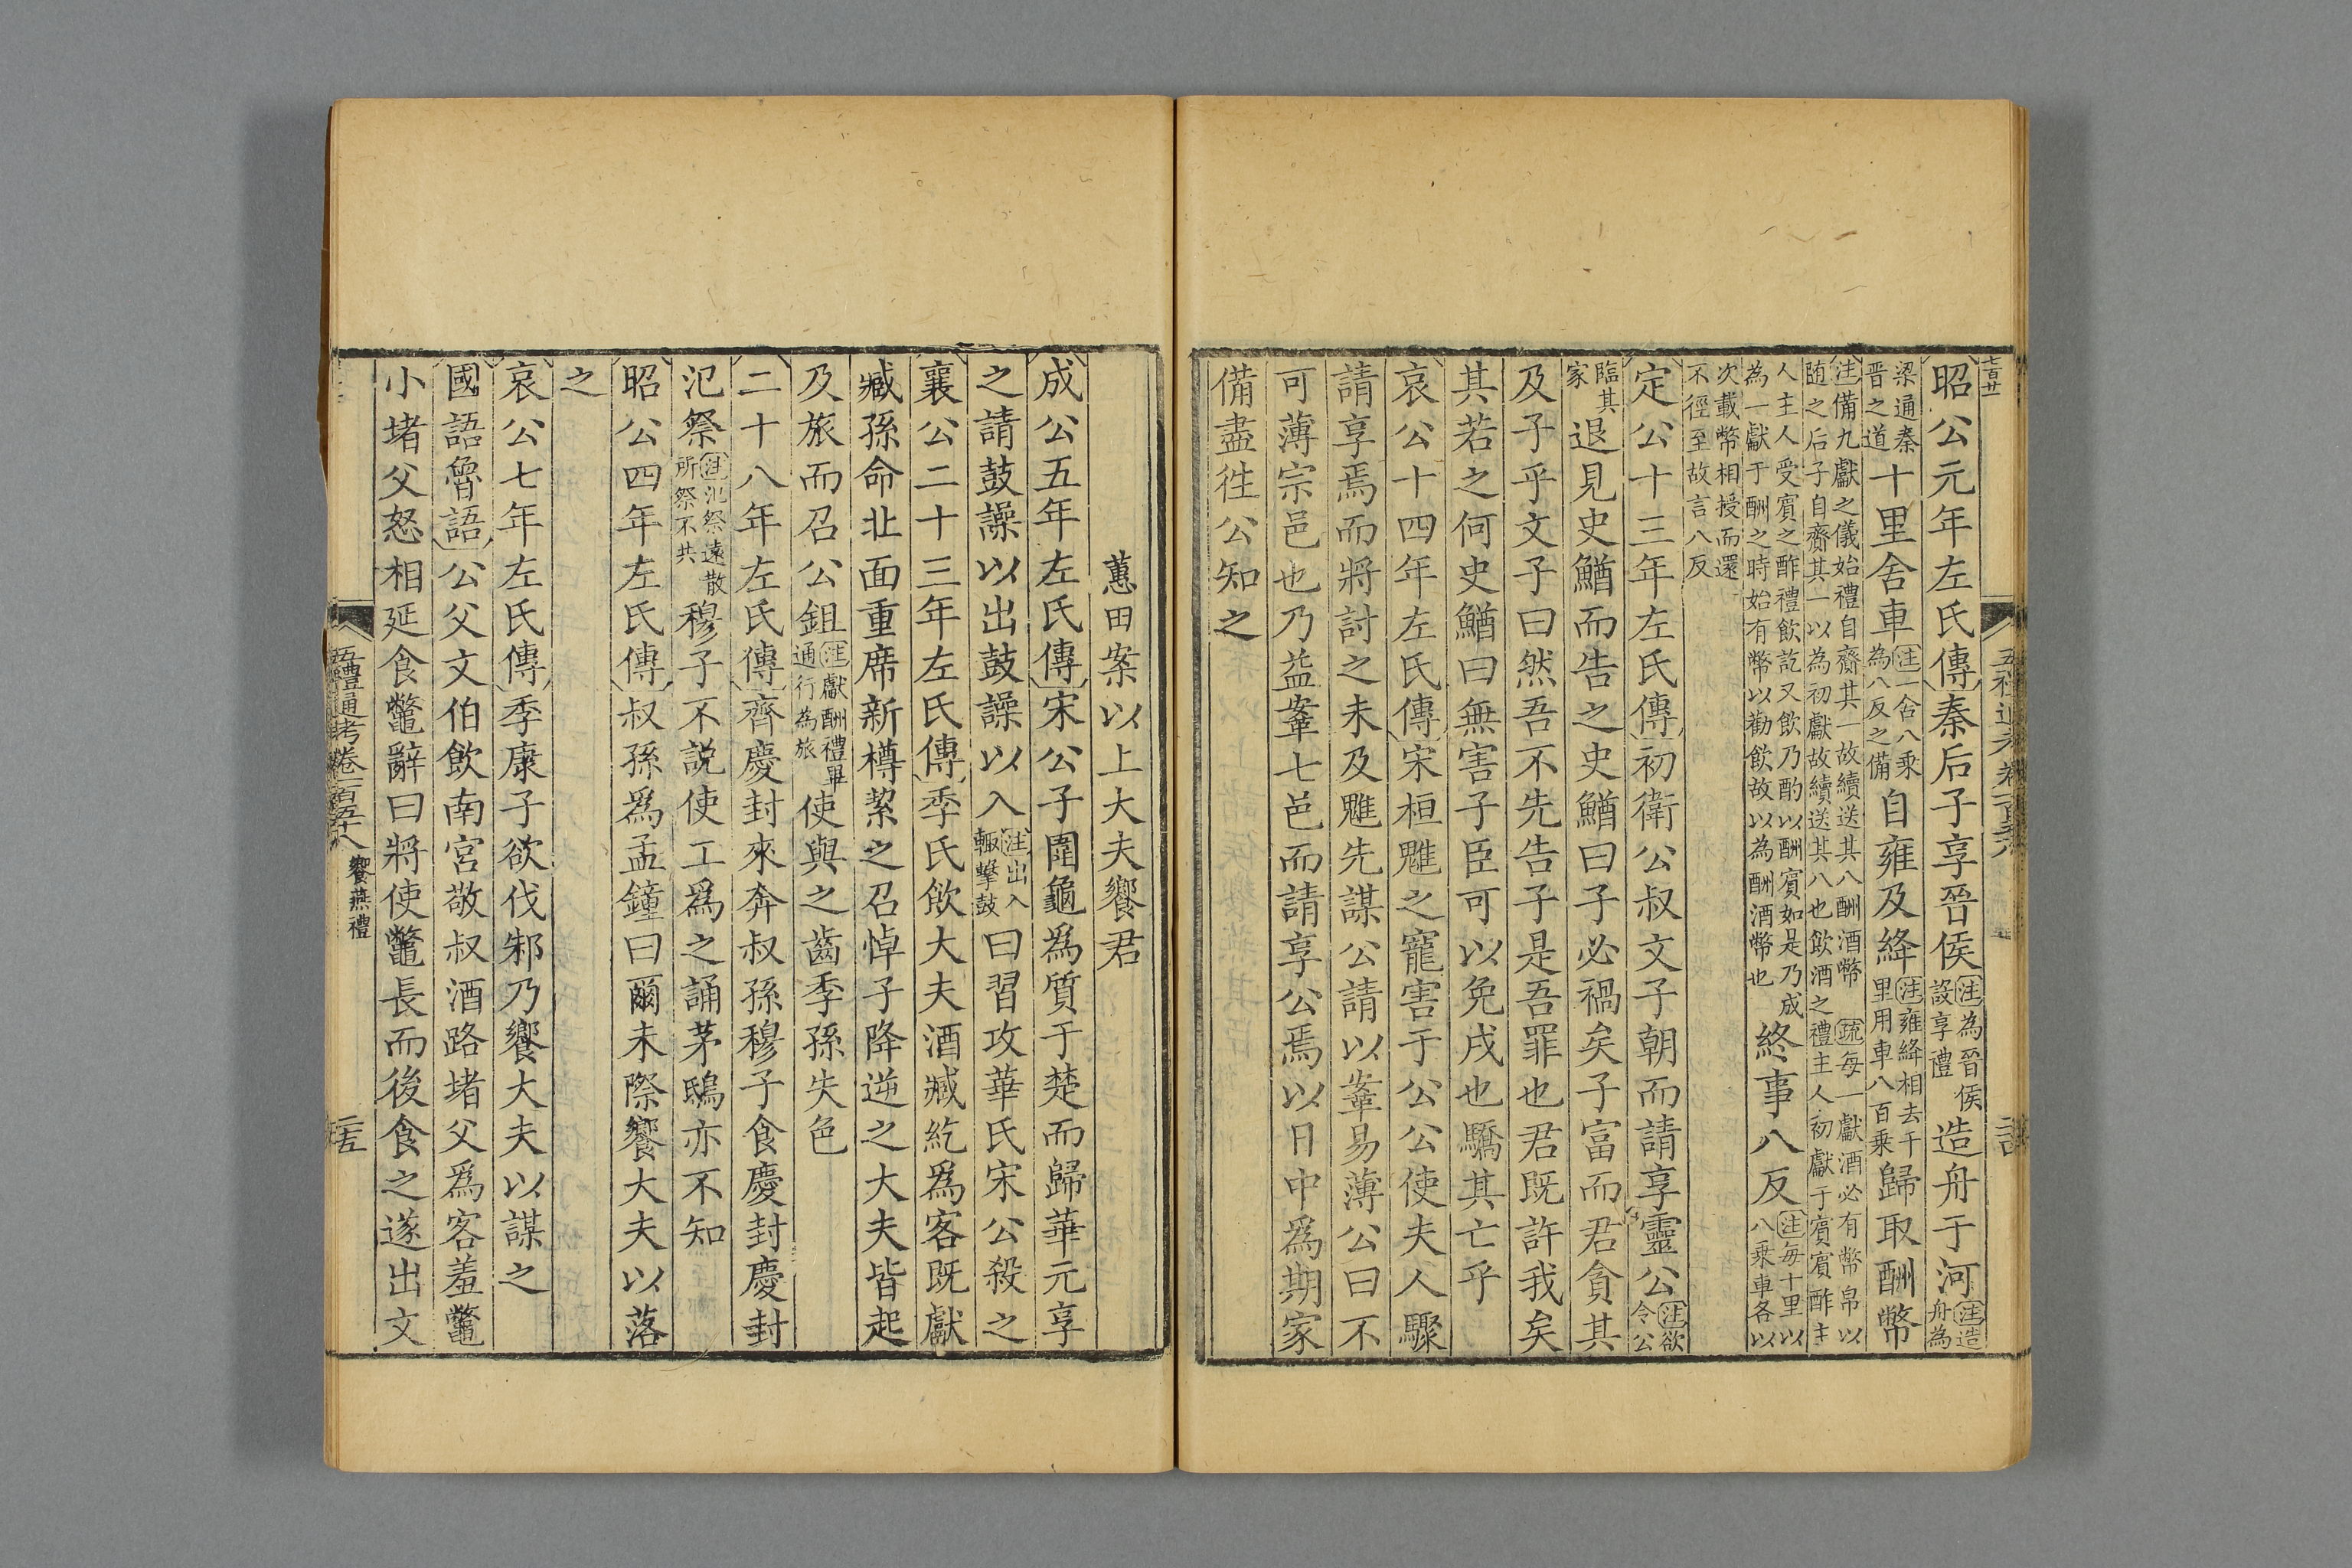 昭公元年左氏傳秦后子享晉侯注為晉侯設享禮造舟于河注造舟為
梁通秦晋之道十里舍車注一舍八乘為八反之備自雍及絳注雍絳相去千里用車八百乘歸取酬幣
注備九獻之儀始禮自齎其一故續送其八酬酒幣疏每一獻酒必有幣帛以
随之后子自齎其一以為初獻故續送其八也飲酒之禮主人初獻于賓賓酢主
人主人受賓之酢禮飲訖又飲乃酌以酬賓如是乃成
為一獻于酬之時始有幣以勸飲故以為酬酒幣也終事八反注每十里以八乘車各以
次載幣相授而還不徑至故言八反
定公十三年左氏傳初衛公叔文子朝而請享靈公注欲令公
臨其家退見史鰌而告之史鰌曰子必禍矣子富而君貪其
及子乎文子曰然吾不先告子是吾罪也君既許我矣
其若之何史鰌曰無害子臣可以免戌也驕其亡乎
哀公十四年左氏傳宋桓魋之寵害于公公使夫人驟
請享焉而將討之未及魋先謀公請以鞌易薄公曰不
可薄宗邑也乃益鞌七邑而請享公焉以日中為期家
備盡徃公知之
蕙田案以上大夫饗君
成公五年左氏傳宋公子圍龜爲質于楚而歸華元享
之請鼓譟以出鼓譟以入注出入輒擊鼓曰習攻華氏宋公殺之
襄公二十三年左氏傳季氏飲大夫酒臧紇爲客既獻
臧孫命北面重席新樽絜之召悼子降逆之大夫皆起
及旅而召公鉏注獻酬禮畢通行為旅使與之齒季孫失色
二十八年左氏傳齊慶封來奔叔孫穆子食慶封慶封
氾祭注氾祭遠散所祭不共穆子不説使工爲之誦茅鴟亦不知
昭公四年左氏傳叔孫爲孟鐘曰爾未際饗大夫以落
之
哀公七年左氏傳季康子欲伐邾乃饗大夫以謀之
國語魯語公父文伯飲南宮敬叔酒路堵父爲客羞鼈
小堵父怒相延食鼈辭曰將使鼈長而後食之遂出文
五禮通考卷一百五十八 饗燕禮 二十五